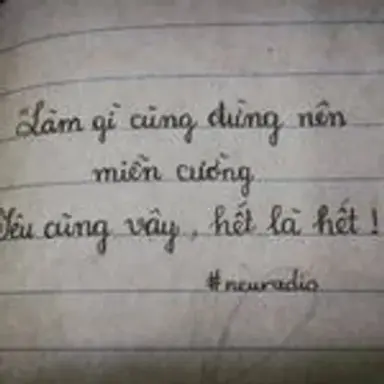 Làm gì cũng đừng nên
miễn cưỡng
Yêu cũng vậy, hết là hết !
#neuradio